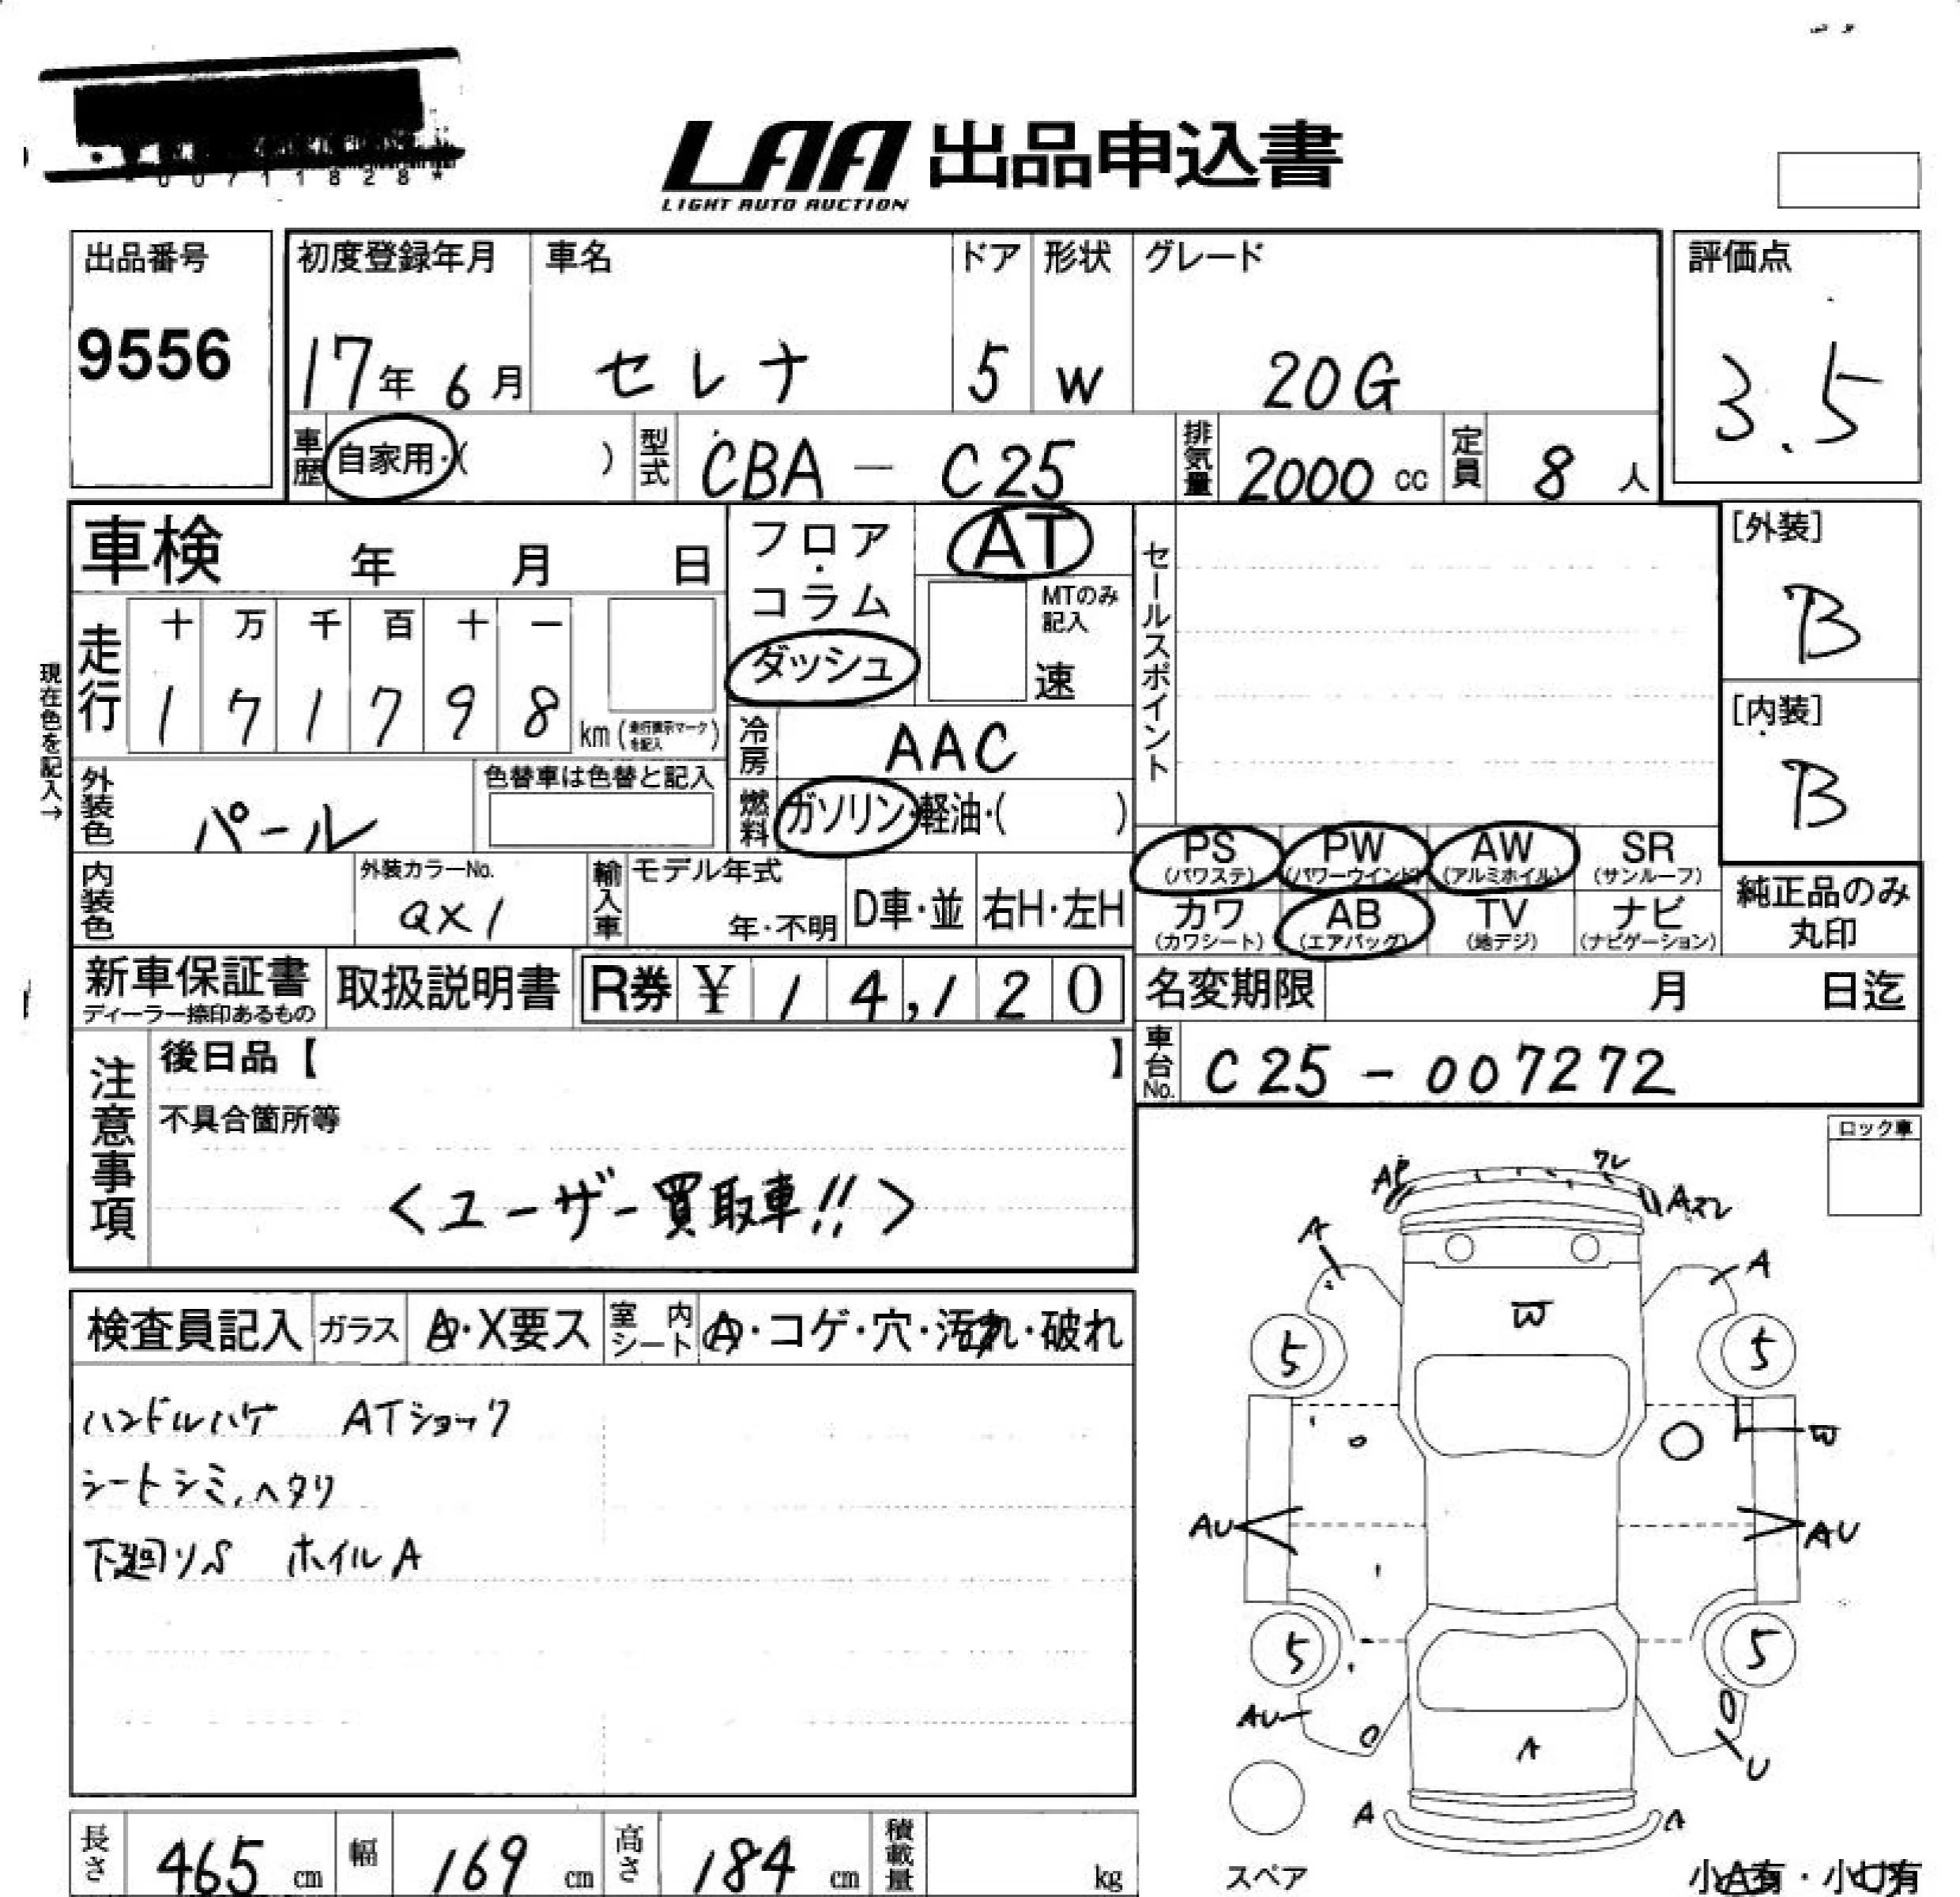 00711828*
LAA 出品申込書
LIGHT AUTO AUCTION
出品番号
9556
初度登録年月 車名 ドア 形状 グレード
17年 6月 セレナ 5 W 20G
評価点
3.5
車歴 自家用・( ) 型式 CBA - C25 排気量 2000 cc 定員 8 人
車検 年 月 日
フロア・コラム
ダッシュ
AT
MTのみ記入
速
セールスポイント
[外装]
B
[内装]
B
現在色を記入→
走行 十 万 千 百 十 一
1 7 1 7 9 8 km (走行表示マークを記入)
冷房 AAC
外装色 パール
色替車は色替と記入
燃料 ガソリン・軽油・( )
内装色
外装カラーNo.
QX1
輸入車 モデル年式
年・不明
D車・並 右H・左H
PS (パワステ)
PW (パワーウインド)
AW (アルミホイル)
SR (サンルーフ)
カワ (カワシート)
AB (エアバッグ)
TV (地デジ)
ナビ (ナビゲーション)
純正品のみ
丸印
新車保証書
ディーラー捺印あるもの
取扱説明書
R券 ¥ 14,120
名変期限 月 日迄
車台No. C25 - 007272
注意事項
後日品【 】
不具合箇所等
<ユーザー買取車!!>
ロック車
検査員記入 ガラス A・X要ス 室内シート A・コゲ・穴・汚れ・破れ
ハンドルハゲ ATショック
シートシミ、ヘタリ
下廻りS ホイルA
ワレ
AP
Aスレ
A
A
W
5
5
W
AU
AU
5
5
AU
U
A
A
A
スペア
小A有・小U有
長さ 465 cm 幅 169 cm 高さ 184 cm 積載量 kg